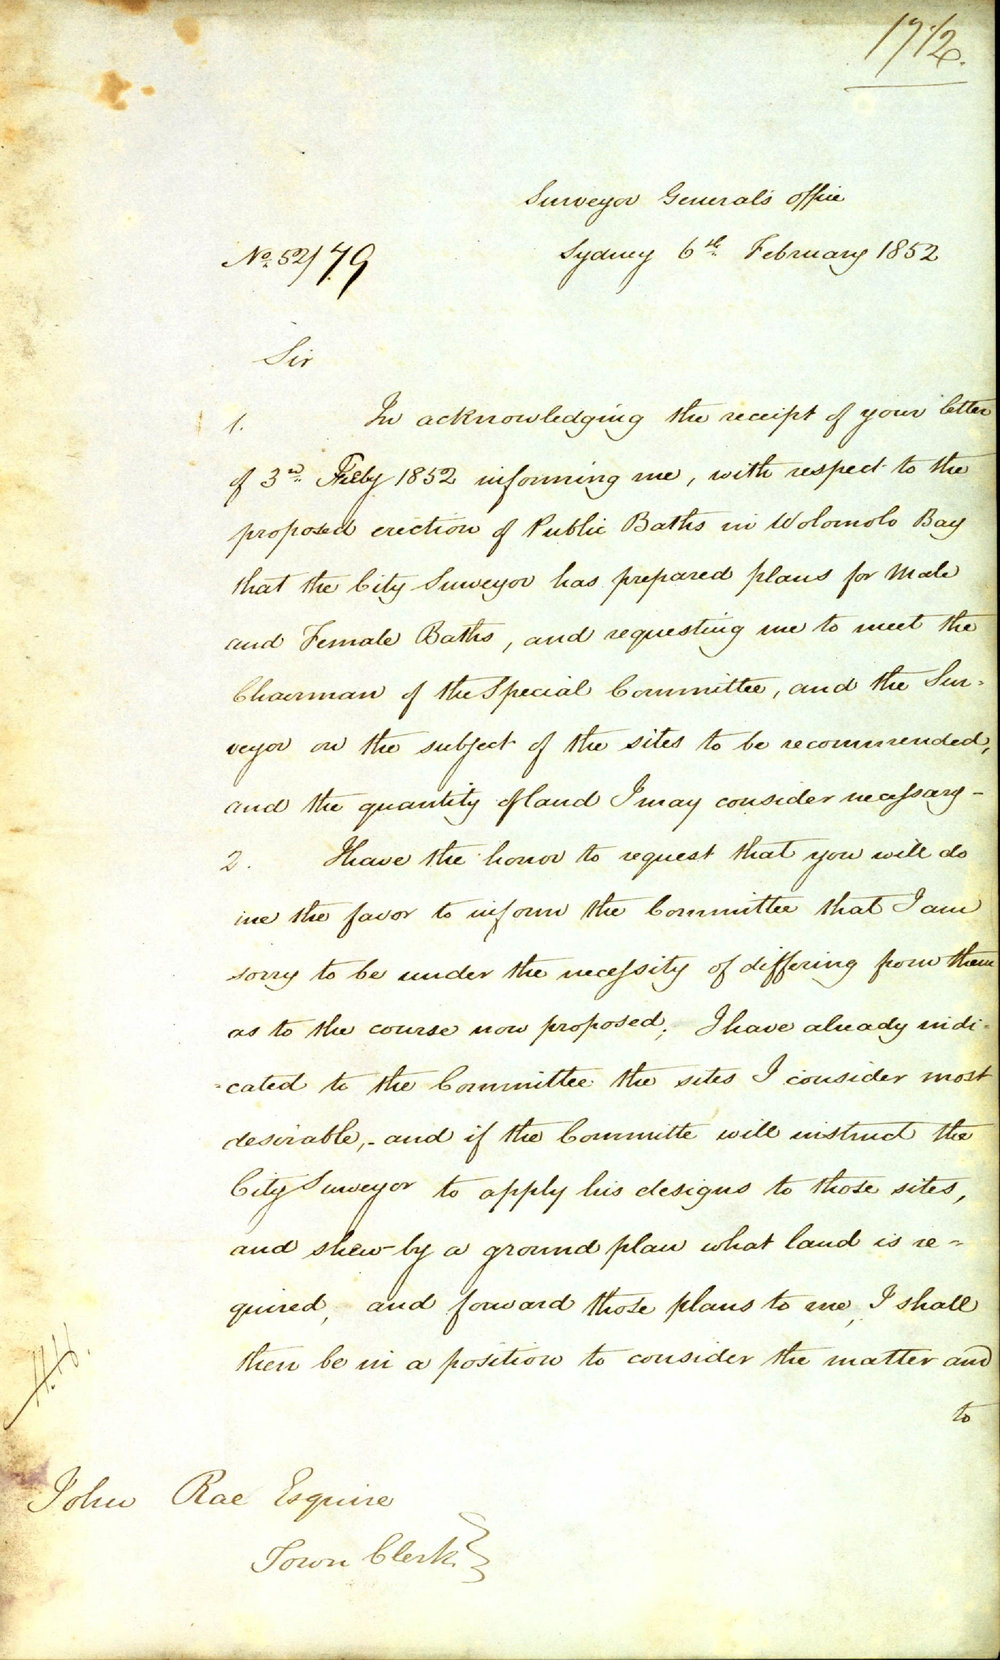 171/2.
Surveyor General's Office
Sydney 6th February 1852
No. 52/79
Sir
1. In acknowledging the receipt of your letter
of 3rd Feby 1852 informing me, with respect to the
proposed erection of Public Baths in Wolomolo Bay
that the City Surveyor has prepared plans for Male
and Female Baths, and requesting me to meet the
Chairman of the Special Committee, and the Sur-
veyor on the subject of the sites to be recommended,
and the quantity of land I may consider necessary -
2. I have the honor to request that you will do
me the favor to inform the Committee that I am
sorry to be under the necessity of differing from them
as to the course now proposed; I have already indi-
-cated to the Committee the sites I consider most
desirable, - and if the Committe will instruct the
City Surveyor to apply his designs to those sites,
and shew by a ground plan what land is re-
quired, and forward those plans to me, I shall
then be in a position to consider the matter and
to
John Rae Esquire
Town Clerk